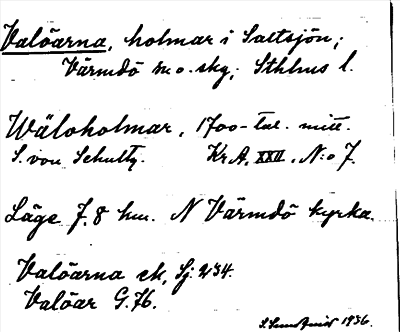 Valöarna, holmar i Saltsjön;
Värmdö sn o. skg, Sthlms l.
Wäloholmar, 1700-tal. mitt.
S. von Schultz. Kr.A. XXII. N:o 7.
Läge 7.8 km. N Värmdö kyrka.
Valöarna ek, Sj: 234.
Valöar G.76.
1936.